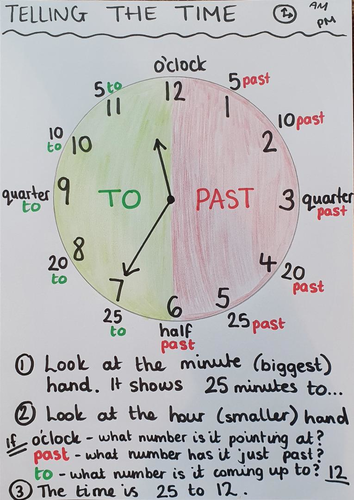 TELLING THE TIME
AM
PM
o'clock
5 to
5 past
11
12
1
10 to
10
10 past
2
quarter to
9
TO
PAST
3
quarter past
20 to
8
4
20 past
7
6
5
25 to
half past
25 past
① Look at the minute (biggest)
hand. It shows 25 minutes to...
② Look at the hour (smaller) hand
if o'clock - what number is it pointing at?
past - what number has it just past?
to - what number is it coming up to? 12
③ The time is 25 to 12.